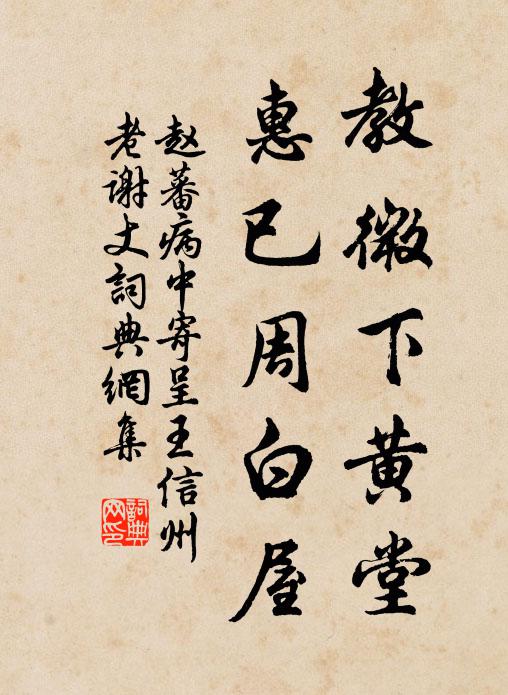 教微下黄堂
惠已周白屋
赵蕃病中寄呈王信州
老谢丈詞典網集
詞典
网印